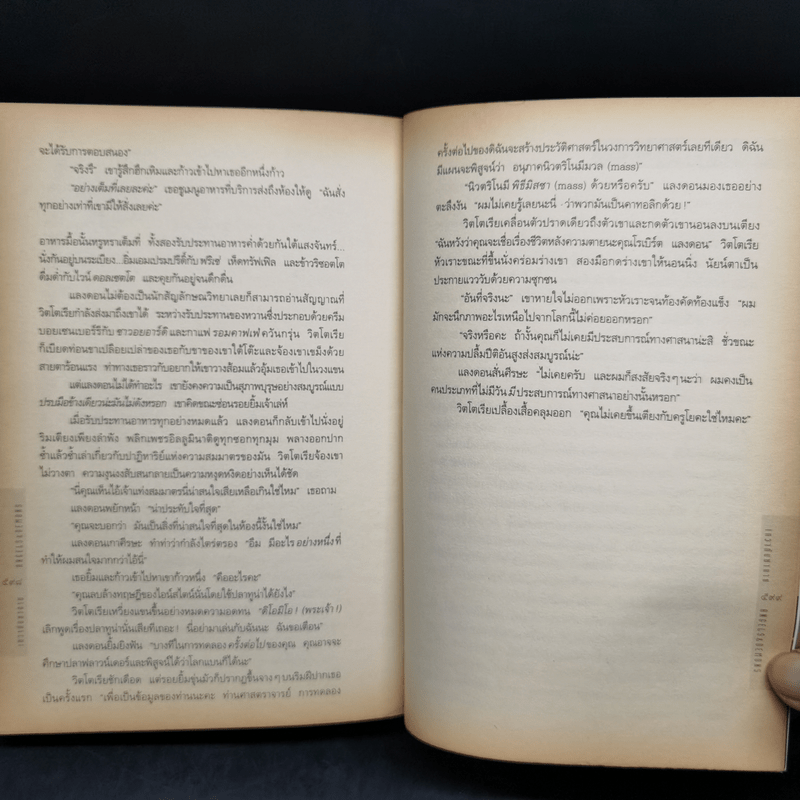 จะได้รับการตอบสนอง"
"จริงรึ" เขารู้สึกฮึกเหิมและก้าวเข้าไปหาเธออีกหนึ่งก้าว
"อย่างเต็มที่เลยละค่ะ" เธอชูเมนูอาหารที่บริการส่งถึงห้องให้ดู "ฉันสั่ง
ทุกอย่างเท่าที่เขามีให้สั่งเลยค่ะ"
อาหารมื้อนั้นหรูหราเต็มที่ ทั้งสองรับประทานอาหารค่ำด้วยกันใต้แสงจันทร์...
นั่งกันอยู่บนระเบียง...อิ่มเอมเปรมปรีดิ์กับ ฟริเซ่ เห็ดทรัฟเฟิล และข้าวริซอตโต
ดื่มด่ำกับไวน์ ดอลเซตโต และคุยกันอยู่จนดึกดื่น
แลงดอนไม่ต้องเป็นนักสัญลักษณวิทยาเลยก็สามารถอ่านสัญญาณที่
วิตโตเรียกำลังส่งมาถึงเขาได้ ระหว่างรับประทานของหวานซึ่งประกอบด้วยครีม
บอยเซนเบอร์รีกับ ซาวอยอาร์ดิ และกาแฟ รอมคาฟเฟ่ ควันกรุ่น วิตโตเรีย
ก็เบียดท่อนขาเปลือยเปล่าของเธอกับขาของเขาใต้โต๊ะและจ้องเขาเขม็งด้วย
สายตาร้อนแรง ท่าทางเธอราวกับอยากให้เขาวางส้อมแล้วอุ้มเธอเข้าไปในวงแขน
แต่แลงดอนไม่ได้ทำอะไร เขายังคงความเป็นสุภาพบุรุษอย่างสมบูรณ์แบบ
ปรบมือข้างเดียวน่ะมันไม่ดังหรอก เขาคิดขณะซ่อนรอยยิ้มเจ้าเล่ห์
เมื่อรับประทานอาหารทุกอย่างหมดแล้ว แลงดอนก็กลับเข้าไปนั่งอยู่
ริมเตียงเพียงลำพัง พลิกเพชรอิลลูมินาติดูทุกซอกทุกมุม พลางออกปาก
ซ้ำแล้วซ้ำเล่าเกี่ยวกับปาฏิหาริย์แห่งความสมมาตรของมัน วิตโตเรียจ้องเขา
ไม่วางตา ความงุนงงสับสนกลายเป็นความหงุดหงิดอย่างเห็นได้ชัด
"นี่คุณเห็นไอ้เจ้าแท่งสมมาตรนี่น่าสนใจเสียเหลือเกินใช่ไหม" เธอถาม
แลงดอนพยักหน้า "น่าประทับใจที่สุด"
"คุณจะบอกว่า มันเป็นสิ่งที่น่าสนใจที่สุดในห้องนี้งั้นใช่ไหม"
แลงดอนเกาศีรษะ ทำท่าว่ากำลังใคร่ครอง "อืม มีอะไร อย่างหนึ่ง ที่
ทำให้ผมสนใจมากกว่าไอ้นี่"
เธอยิ้มและก้าวเข้าไปหาเขาก้าวหนึ่ง "คืออะไรคะ"
"คุณลบล้างทฤษฎีของไอน์สไตน์นั่นโดยใช้ปลาทูน่าได้ยังไง"
วิตโตเรียเหวี่ยงแขนขึ้นอย่างหมดความอดทน "ดิโอมิโอ ! (พระเจ้า !)
เลิกพูดเรื่องปลาทูน่านั่นเสียทีเถอะ ! นี่อย่ามาเล่นกับฉันนะ ฉันขอเตือน"
แลงดอนยิ้มยิงฟัน "บางทีในการทดลอง ครั้งต่อไป ของคุณ คุณอาจจะ
ศึกษาปลาฟลาวน์เดอร์และพิสูจน์ได้ว่าโลกแบนก็ได้นะ"
วิตโตเรียชักเดือด แต่รอยยิ้มขุ่นมัวก็ปรากฏขึ้นจาง ๆ บนริมฝีปากเธอ
เป็นครั้งแรก "เพื่อเป็นข้อมูลของท่านนะคะ ท่านศาสตราจารย์ การทดลอง
๕๙๘
ครั้งต่อไปของดิฉันจะสร้างประวัติศาสตร์ในวงการวิทยาศาสตร์เลยทีเดียว ดิฉัน
มีแผนจะพิสูจน์ว่า อนุภาคนิวตริโนมีมวล (mass)"
"นิวตริโนมี พิธีมิสซา (mass) ด้วยหรือครับ" แลงดอนมองเธออย่าง
ตะลึงงัน "ผมไม่เคยรู้เลยนะนี่ ว่าพวกมันเป็นคาทอลิกด้วย !"
วิตโตเรียเคลื่อนตัวปราดเดียวถึงตัวเขาและกดตัวเขานอนลงบนเตียง
"ฉันหวังว่าคุณจะเชื่อเรื่องชีวิตหลังความตายนะคุณโรเบิร์ต แลงดอน" วิตโตเรีย
หัวเราะขณะที่ขึ้นนั่งคร่อมร่างเขา สองมือกดร่างเขาให้นอนนิ่ง นัยน์ตาเป็น
ประกายแวววับด้วยความซุกซน
"อันที่จริงนะ" เขาหายใจไม่ออกเพราะหัวเราะจนท้องคัดท้องแข็ง "ผม
มักจะนึกภาพอะไรเหนือไปจากโลกนี้ไม่ค่อยออกหรอก"
"จริงหรือคะ ถ้างั้นคุณก็ไม่เคยมีประสบการณ์ทางศาสนาน่ะสิ ชั่วขณะ
แห่งความปลื้มปีติอันสูงส่งสมบูรณ์น่ะ"
แลงดอนสั่นศีรษะ "ไม่เคยครับ และผมก็สงสัยจริง ๆ นะว่า ผมคงเป็น
คนประเภทที่ไม่มีวัน มี ประสบการณ์ทางศาสนาอย่างนั้นหรอก"
วิตโตเรียเปลื้องเสื้อคลุมออก "คุณไม่เคยขึ้นเตียงกับครูโยคะใช่ไหมคะ"
๕๙๙